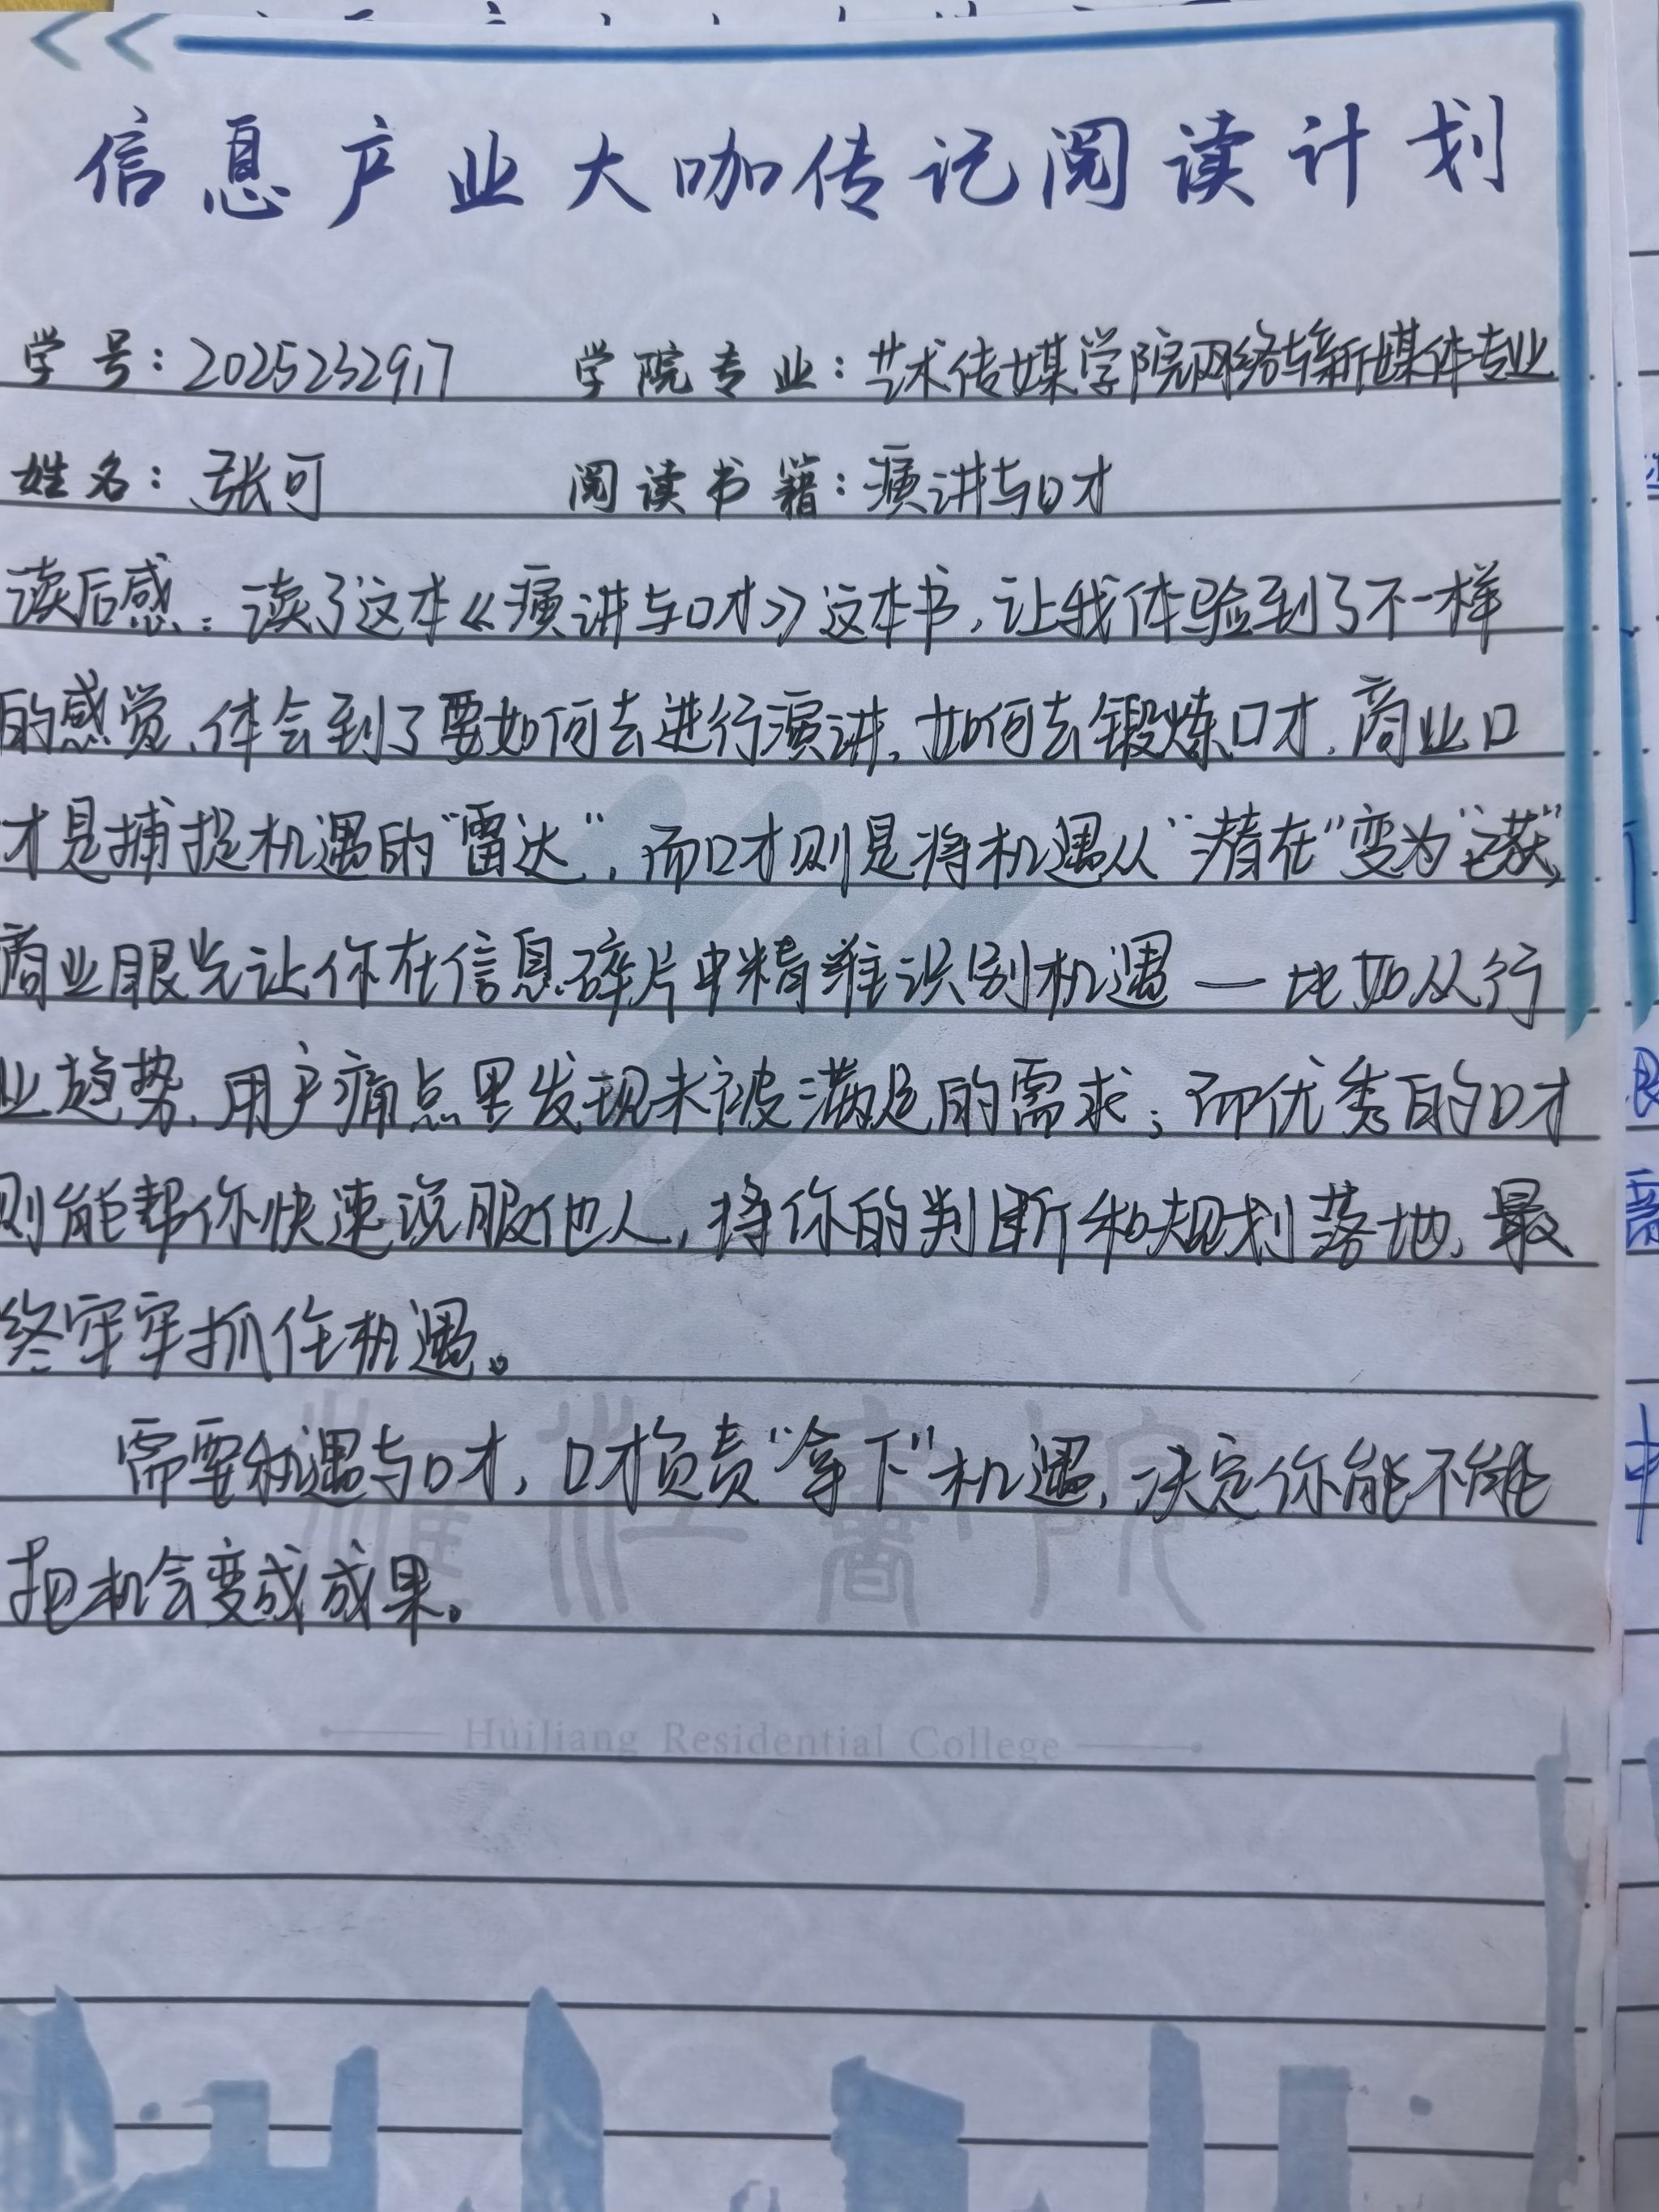 信息产业大咖传记阅读计划
学号：2025232917 学院专业：艺术传媒学院网络与新媒体专业
姓名：张可 阅读书籍：演讲与口才
读后感：读了这本《演讲与口才》这本书，让我体验到了不一样
的感觉，体会到了要如何去进行演讲，如何去锻炼口才，商业口
才是捕捉机遇的“雷达”，而口才则是将机遇从“潜在”变为
商业眼光让你在信息碎片中精准识别机遇—比如从行
业趋势、用户痛点里发现未被满足的需求；而优秀的口才
则能帮你快速说服他人，将你的判断和规划落地，最
终牢牢抓住机遇。
需要机遇与口才，口才负责“拿下”机遇，决定你能不能
把机会变成成果。
HuiJiang Residential College